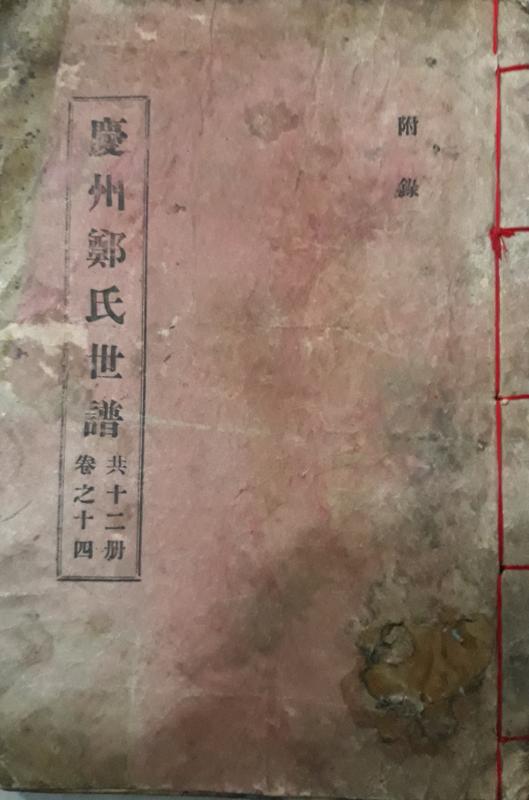 附錄
慶州鄭氏世譜
共十二册
卷之十四